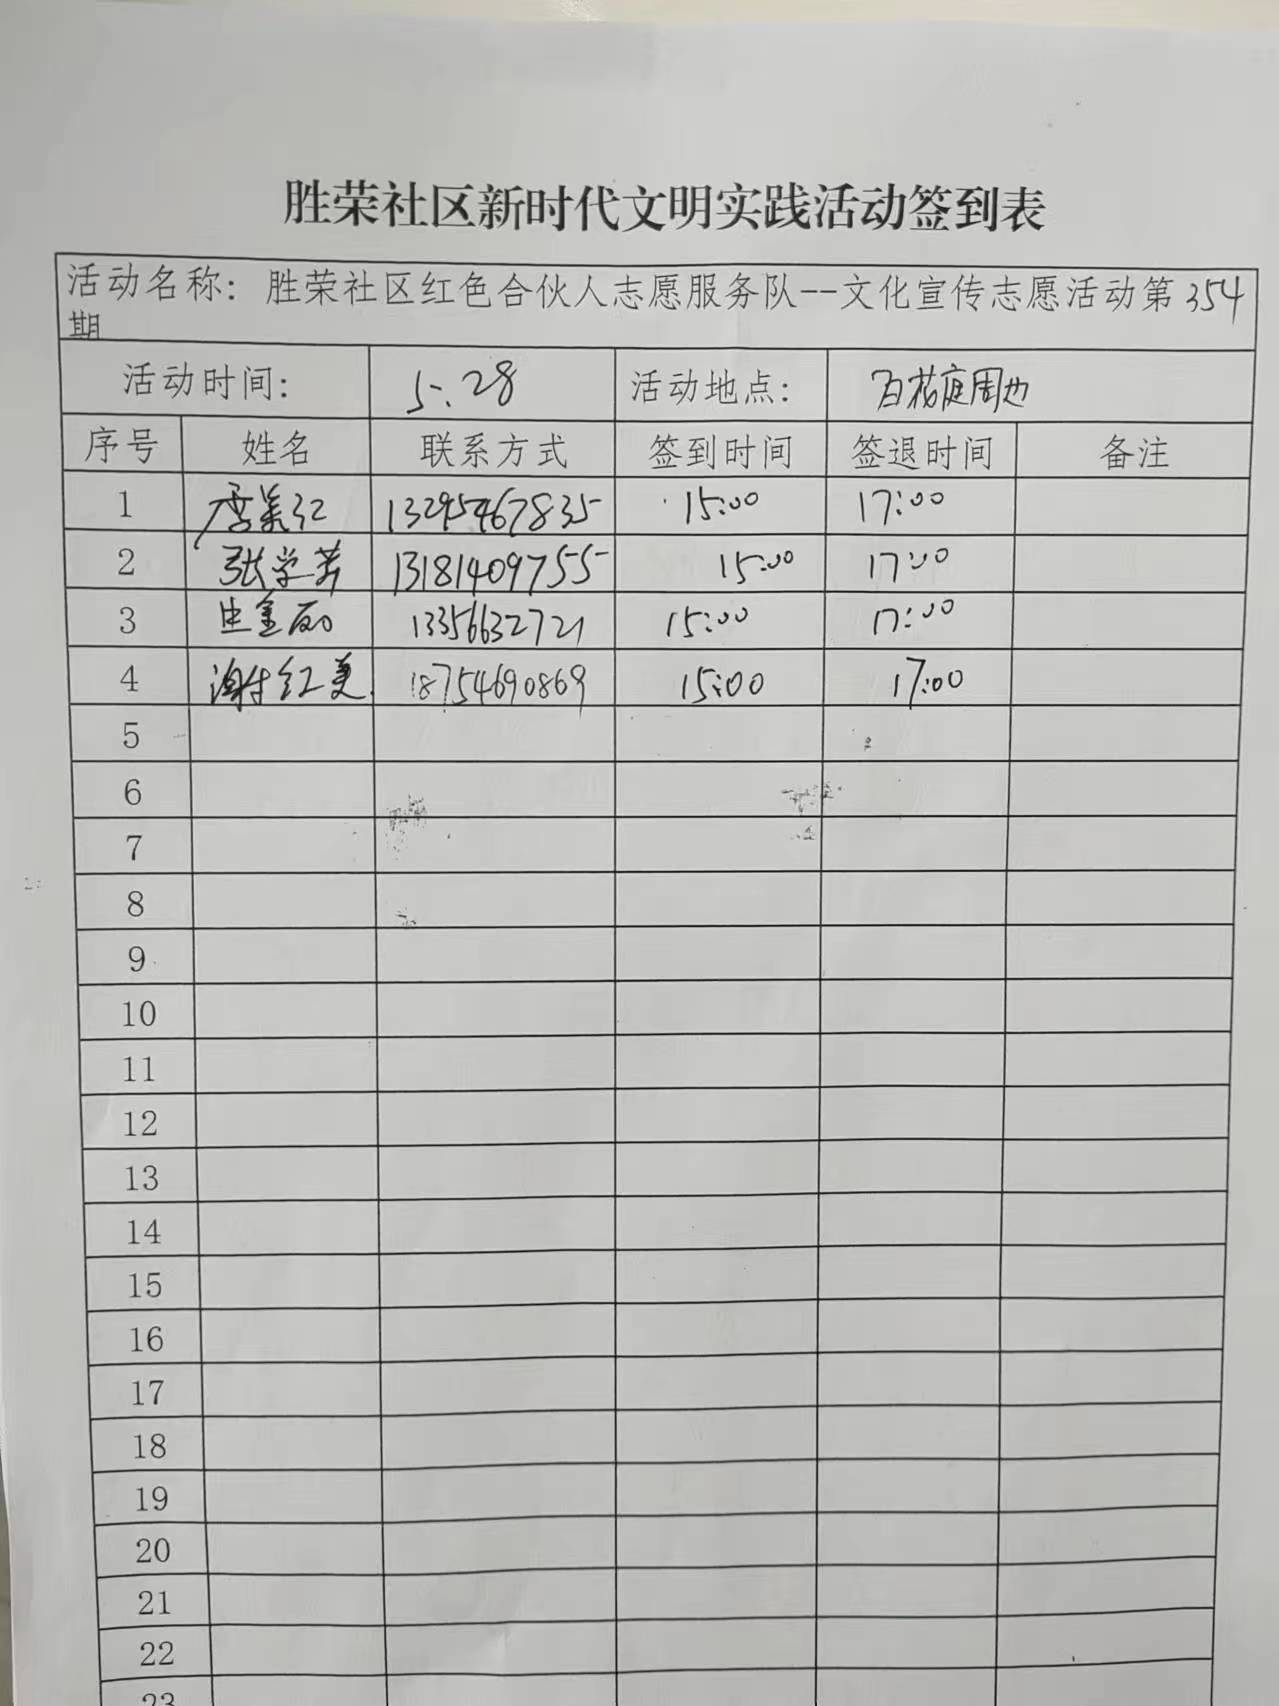 胜荣社区新时代文明实践活动签到表
活动名称：胜荣社区红色合伙人志愿服务队--文化宣传志愿活动第354
期
活动时间： 5.28 活动地点： 百花庭周边
序号 姓名 联系方式 签到时间 签退时间 备注
1 李美红 13295467835 15:00 17:00
2 张学芳 13181409755 15:00 17:00
3 13356632721 15:00 17:00
4 谢红美 18754690869 15:00 17:00
5
6
7
8
9
10
11
12
13
14
15
16
17
18
19
20
21
22
23